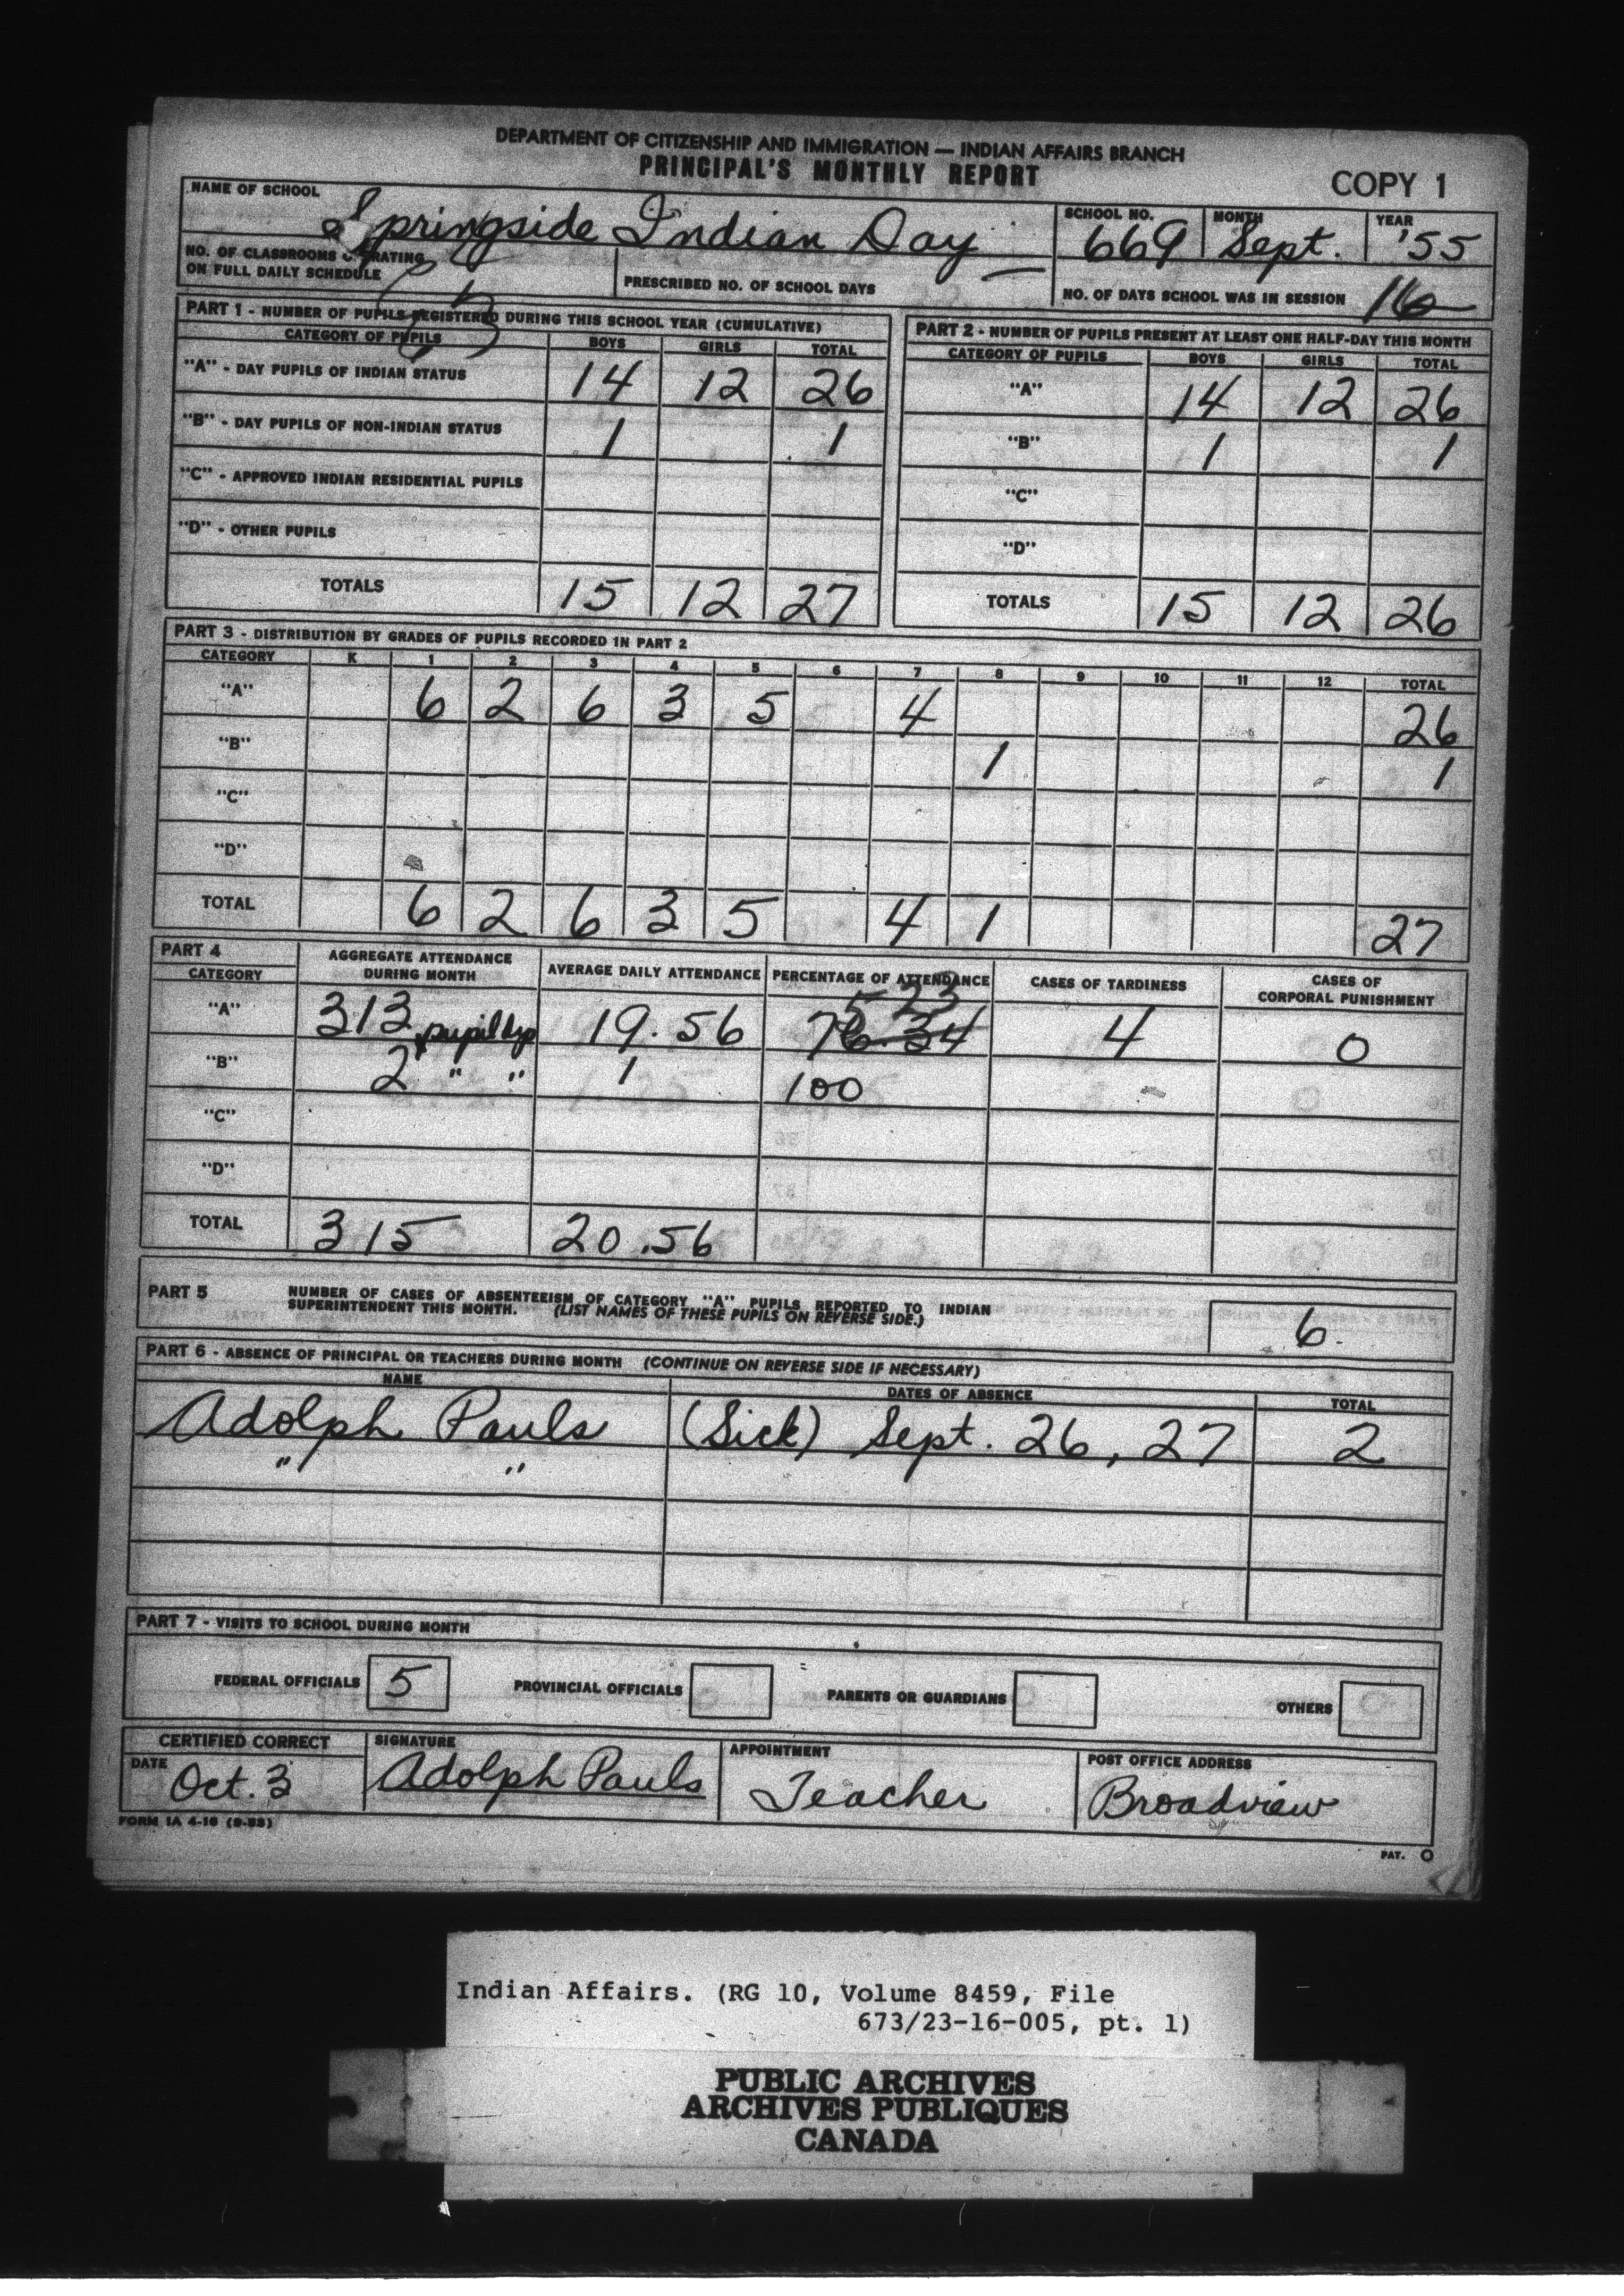 DEPARTMENT OF CITIZENSHIP AND IMMIGRATION — INDIAN AFFAIRS BRANCH
PRINCIPAL'S MONTHLY REPORT
COPY 1
NAME OF SCHOOL Springside Indian Day
SCHOOL NO. 669 MONTH Sept. YEAR '55
NO. OF CLASSROOMS OPERATING
ON FULL DAILY SCHEDULE
PRESCRIBED NO. OF SCHOOL DAYS —
NO. OF DAYS SCHOOL WAS IN SESSION 16
PART 1 - NUMBER OF PUPILS REGISTERED DURING THIS SCHOOL YEAR (CUMULATIVE)
CATEGORY OF PUPILS BOYS GIRLS TOTAL
"A" - DAY PUPILS OF INDIAN STATUS 14 12 26
"B" - DAY PUPILS OF NON-INDIAN STATUS 1 1
"C" - APPROVED INDIAN RESIDENTIAL PUPILS
"D" - OTHER PUPILS
TOTALS 15 12 27
PART 2 - NUMBER OF PUPILS PRESENT AT LEAST ONE HALF-DAY THIS MONTH
CATEGORY OF PUPILS BOYS GIRLS TOTAL
"A" 14 12 26
"B" 1 1
"C"
"D"
TOTALS 15 12 26
PART 3 - DISTRIBUTION BY GRADES OF PUPILS RECORDED IN PART 2
CATEGORY K 1 2 3 4 5 6 7 8 9 10 11 12 TOTAL
"A" 6 2 6 3 5 4 26
"B" 1 1
"C"
"D"
TOTAL 6 2 6 3 5 4 1 27
PART 4
CATEGORY
AGGREGATE ATTENDANCE
DURING MONTH
AVERAGE DAILY ATTENDANCE
PERCENTAGE OF ATTENDANCE
CASES OF TARDINESS
CASES OF
CORPORAL PUNISHMENT
5 23
"A" 313 19.56 76.34 4 0
"B" 2 " " 1 100
"C"
"D"
TOTAL 315 20.56
PART 5 NUMBER OF CASES OF ABSENTEEISM OF CATEGORY "A" PUPILS REPORTED TO INDIAN
SUPERINTENDENT THIS MONTH. (LIST NAMES OF THESE PUPILS ON REVERSE SIDE.)
6.
PART 6 - ABSENCE OF PRINCIPAL OR TEACHERS DURING MONTH (CONTINUE ON REVERSE SIDE IF NECESSARY)
NAME DATES OF ABSENCE TOTAL
Adolph Pauls (Sick) Sept. 26, 27 2
" "
PART 7 - VISITS TO SCHOOL DURING MONTH
FEDERAL OFFICIALS 5 PROVINCIAL OFFICIALS PARENTS OR GUARDIANS OTHERS
CERTIFIED CORRECT
DATE Oct. 3
SIGNATURE Adolph Pauls
APPOINTMENT Teacher
POST OFFICE ADDRESS Broadview
FORM IA 4-16 (9-53)
PAT. O
Indian Affairs. (RG 10, Volume 8459, File
673/23-16-005, pt. 1)
PUBLIC ARCHIVES
ARCHIVES PUBLIQUES
CANADA